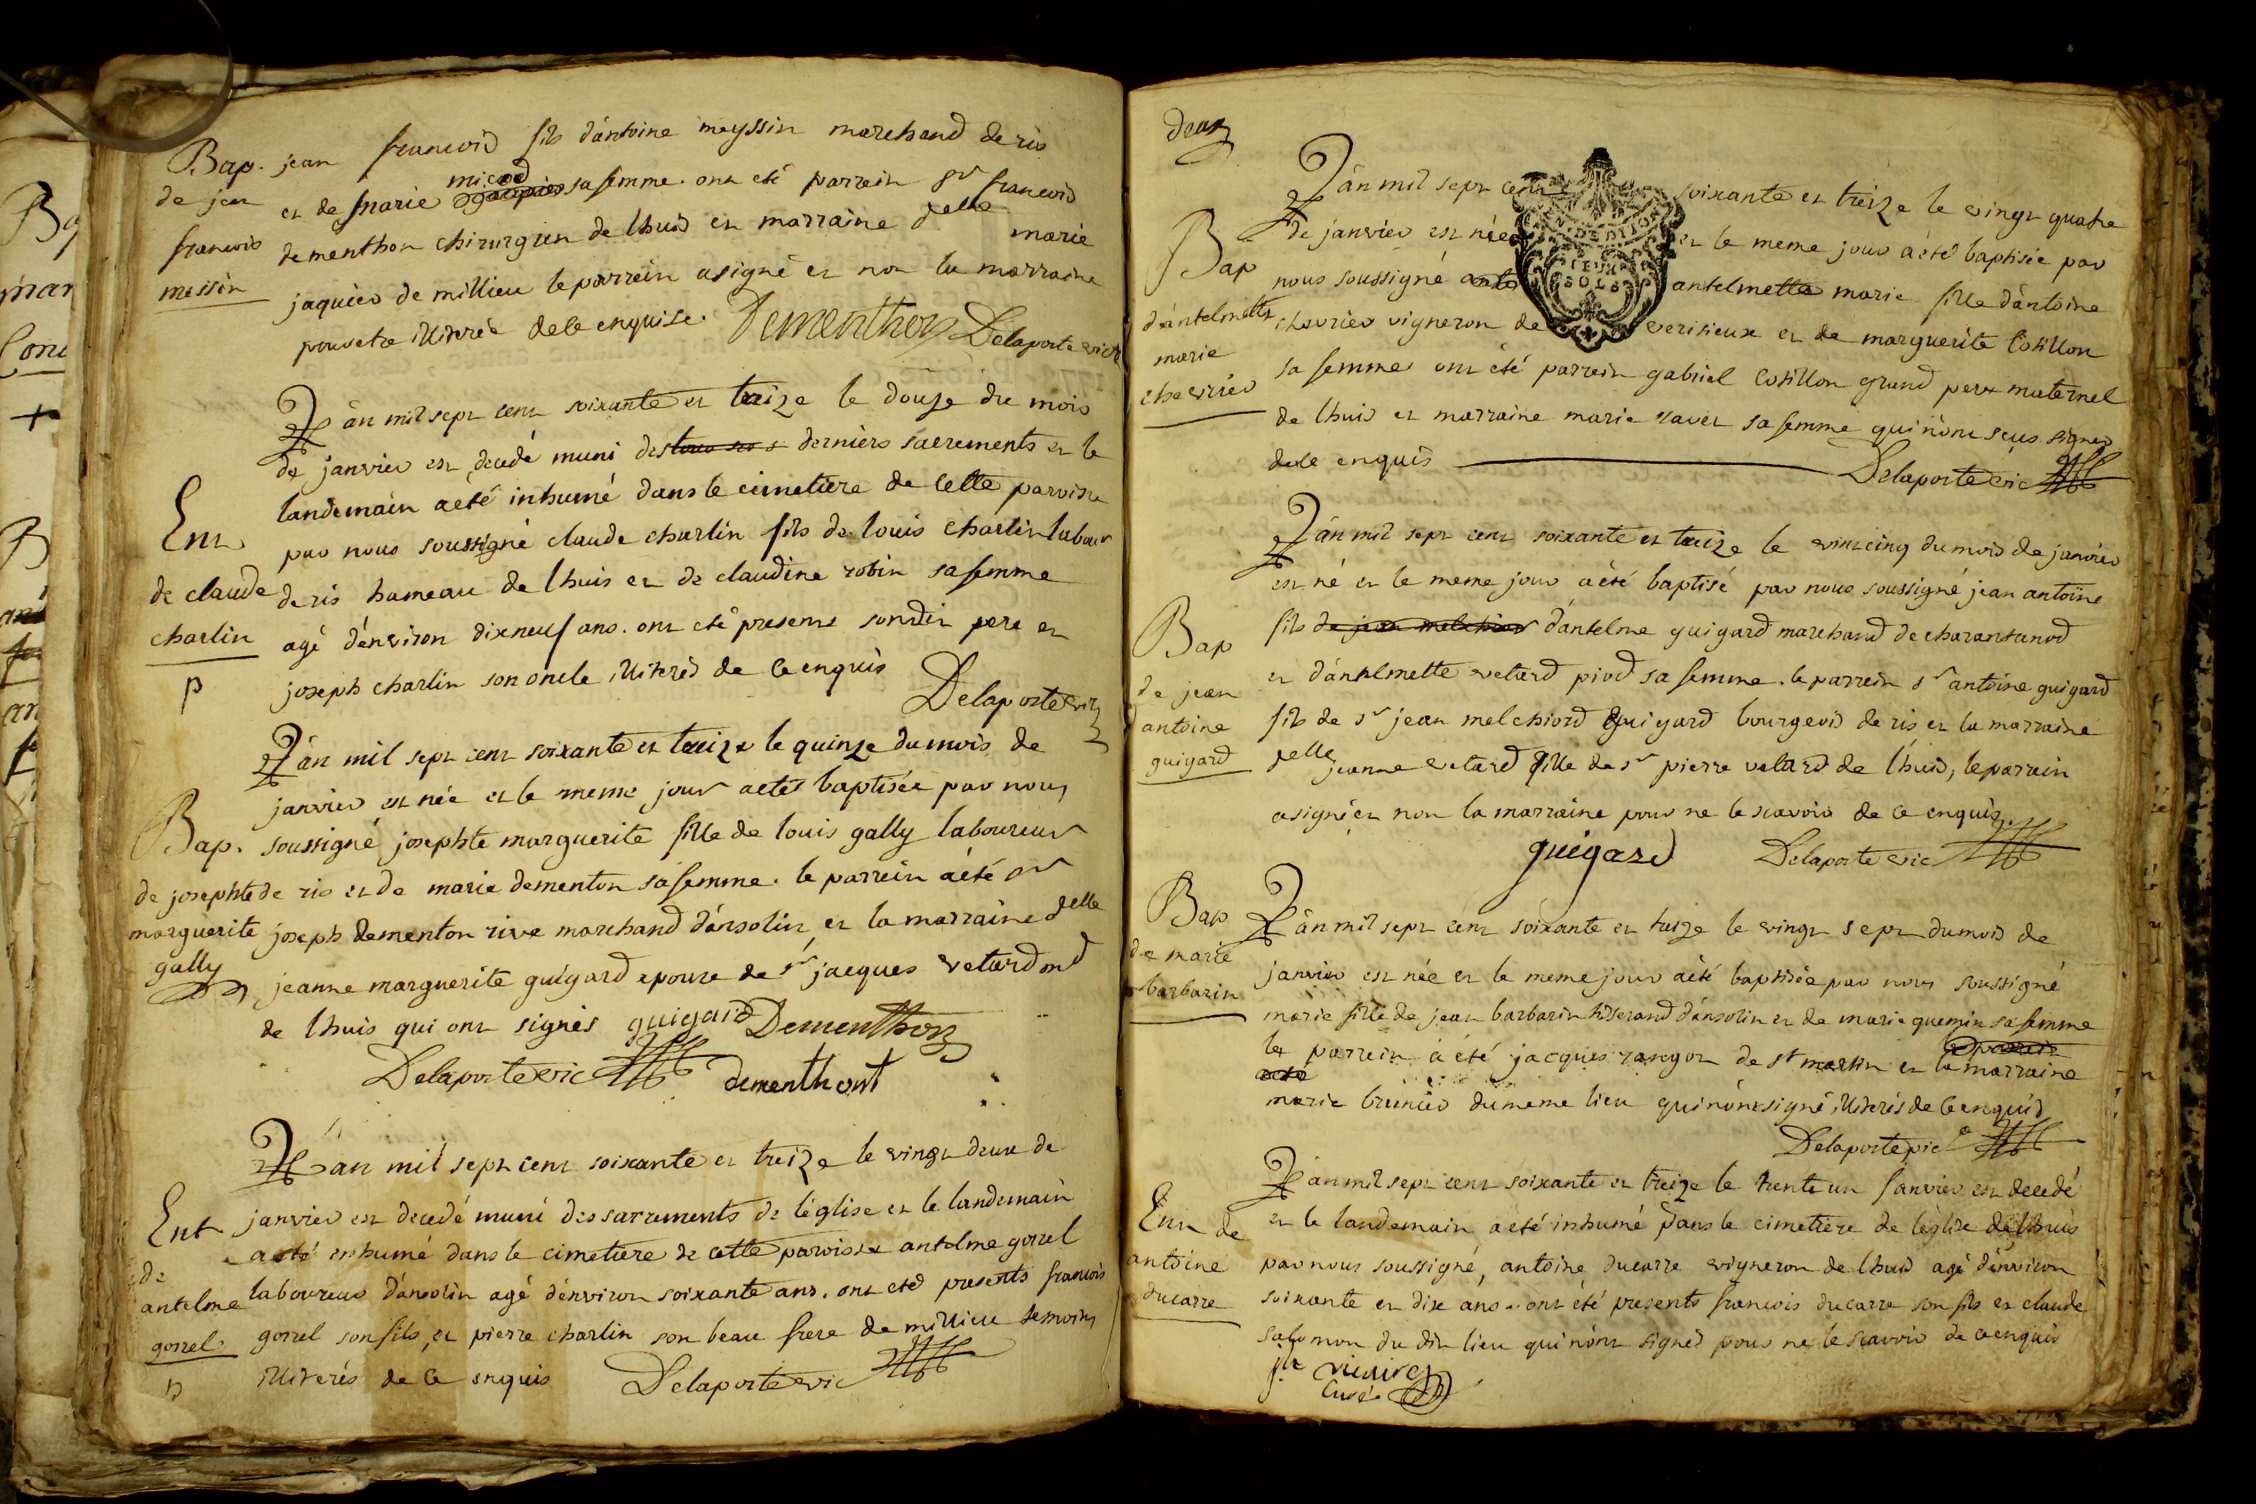 Bap.
de jean
francois
messin
jean francois fils d'antoine meyssin marchand de ris
et de marie micod sa femme. ont eté parrein sr francois
dementhon chirurgien de lhuis et marraine delle marie
jaquier de millieu le parrein a signé et non la marraine
pour etre illiterée de ce enquise.
Dementhon Delaporte vic
L'an mil sept cent soixante et treize le douze du mois
de janvier est decedé muni des derniers sacrements et le
landemain a eté inhumé dans le cimetiere de cette paroisse
par nous soussigné claude charlin fils de louis charlin labour
de ris hameau de lhuis et de claudine robin sa femme
agé d'environ dixneuf ans. ont eté presents son dit pere et
joseph charlin son oncle illiterés de ce enquis
Delaporte vic
Ent
de claude
charlin
p
L'an mil sept cent soixante et treize le quinze du mois de
janvier est née et le meme jour a eté baptisée par nous
soussigné josephte marguerite fille de louis gally laboureur
de ris et de marie dementon sa femme. le parrein a été sr
joseph dementon rive marchand d'ansolin et la marraine delle
jeanne marguerite guigard epouse de sr jacques vetard
de lhuis qui ont signés guigard Dementhon
Delaporte vic dementhont
Bap.
de josephte
marguerite
gally
L'an mil sept cent soixante et treize le vingt deux de
janvier est decedé muni des sacrements de l'église et le landemain
a eté inhumé dans le cimetiere de cette paroisse antelme gorrel
laboureur d'ansolin agé d'environ soixante ans. ont eté presents francois
gorrel son fils, et pierre charlin son beau frere de millieu temoins
illiterés de ce enquis Delaporte vic
Ent
de
antelme
gorrel
deux
GEN. DE DIJON
DEUX
SOLS
L'an mil sept cent soixante et treize le vingt quatre
de janvier est née et le meme jour a été baptisée par
nous soussigné antelmette marie fille d'antoine
chevrier vigneron de verisieux et de marguerite Cotillon
sa femme ont été parrein gabriel Cotillon grand pere maternel
de lhuis et marraine marie ravet sa femme qui n'ont sçus signer
de ce enquis Delaporte vic
Bap
d'antelmette
marie
chevrier
L'an mil sept cent soixante et treize le vint cinq du mois de janvier
est né et le meme jour a été baptisé par nous soussigné jean antoine
fils de jean melchior d'antelme guigard marchand de charantanod
et d'antelmette vetard piod sa femme. le parrein sr antoine guigard
fils de sr jean melchiord guigard bourgeois de ris et la marraine
delle jeanne vetard fille de sr pierre vetard de lhuis, le parrein
a signé et non la marraine pour ne le scavoir de ce enquis.
guigard Delaporte vic
Bap
de jean
antoine
guigard
L'an mil sept cent soixante et treize le vingt sept du mois de
janvier est née et le meme jour a été baptisée par nous soussigné
marie fille de jean barbarin tisserand d'ansolin et de marie quemin sa femme
le parrein a été jacques rangon de st martin et la marraine
marie brunier du meme lieu qui n'ont signé illiterés de ce enquis
Delaporte vic
Bap
de marie
barbarin
L'an mil sept cent soixante et treize le trente un janvier est decedé
et le landemain a eté inhumé dans le cimetiere de l'eglise de lhuis
par nous soussigné, antoine ducarre vigneron de lhuis agé d'environ
soixante et dix ans. ont été presents francois ducarre son fils et claude
salomon du dit lieu qui n'ont signés pour ne le scavoir de ce enquis
Curé
Ent de
antoine
ducarre